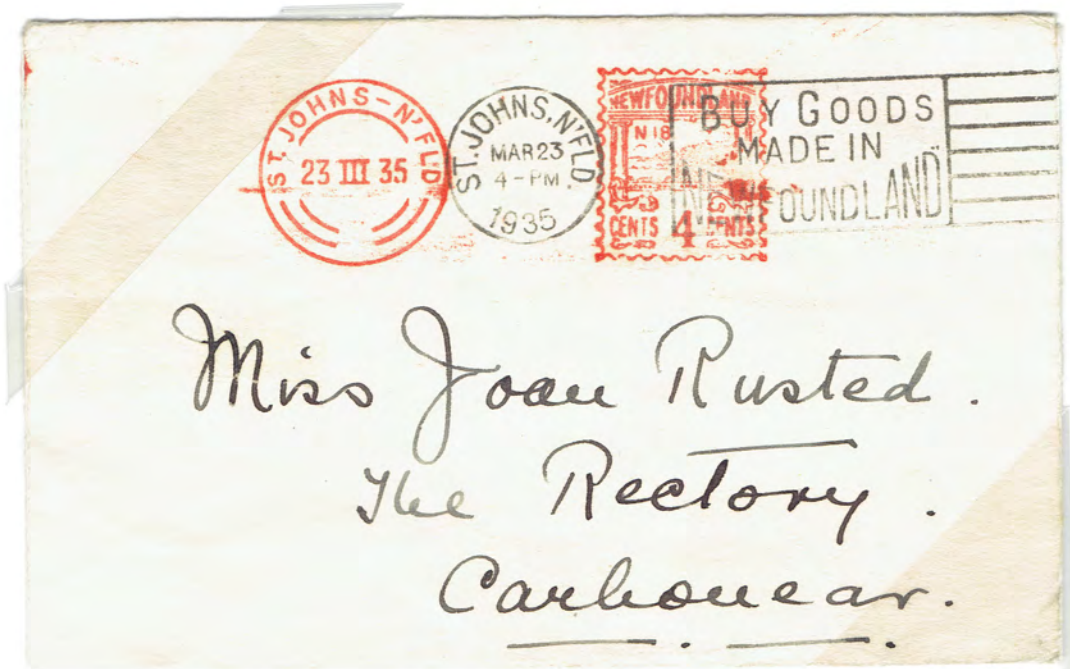 ST. JOHNS - N'FLD
23 III 35
ST. JOHNS, N'FLD
MAR 23
4 - PM.
1935
NEWFOUNDLAND
N 18
CENTS 4 CENTS
BUY GOODS
MADE IN
NEWFOUNDLAND
Miss Joan Rusted.
The Rectory.
Carbonear.